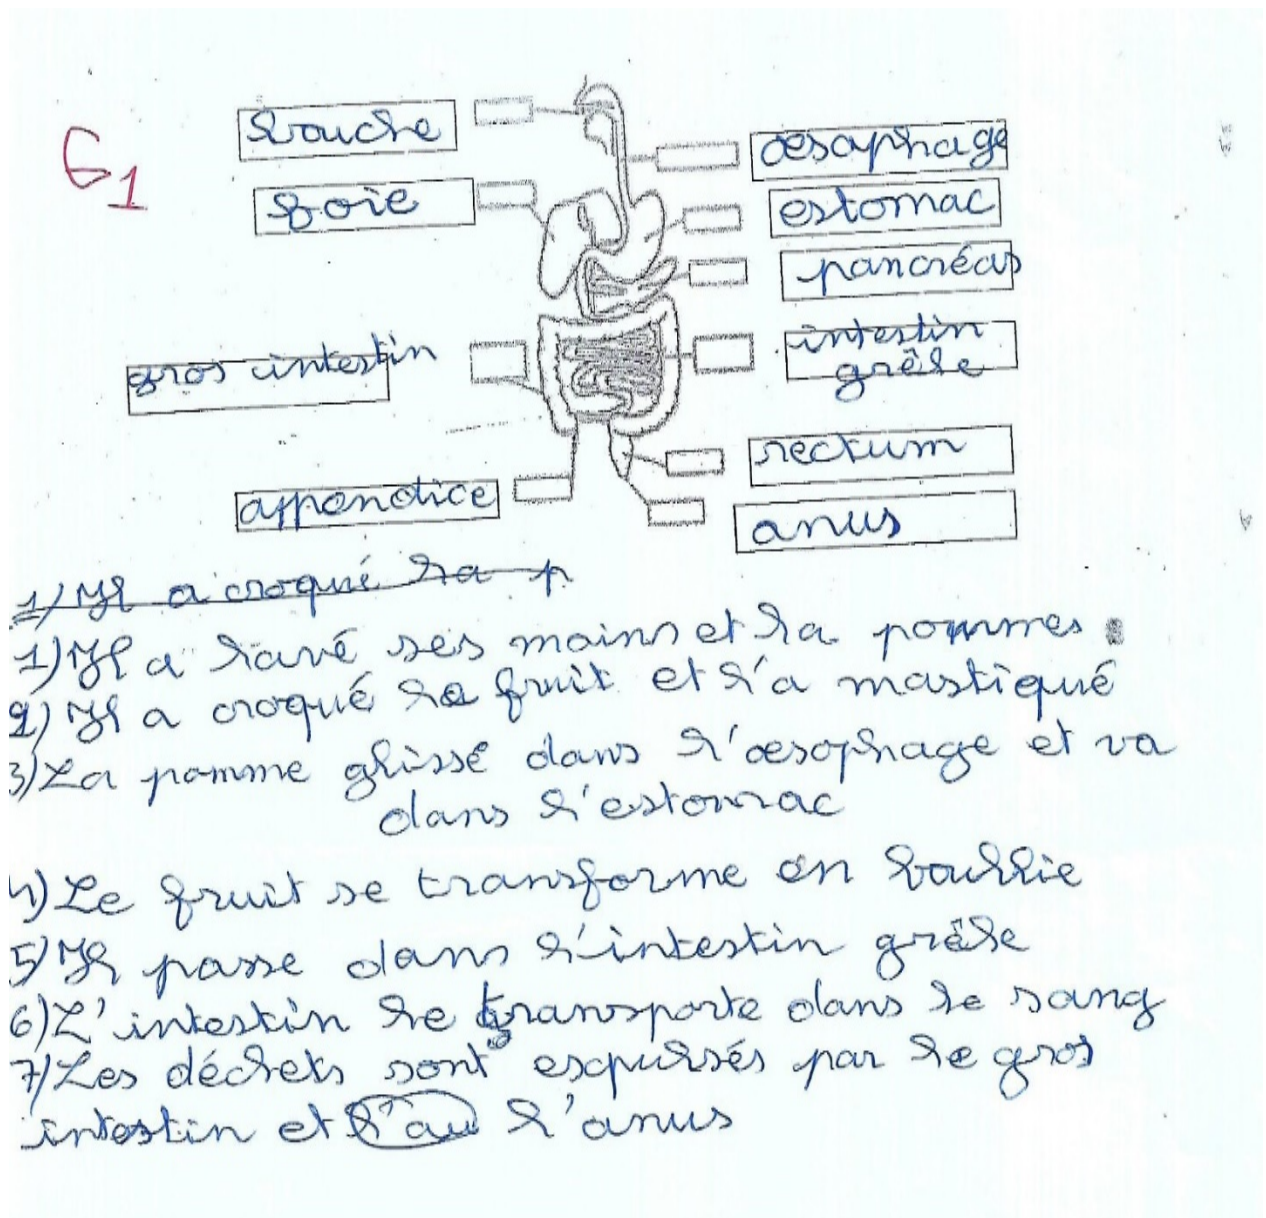 G1
bouche
œsophage
foie
estomac
pancréas
gros intestin
intestin
grêle
rectum
appendice
anus
1) Il a croqué la p
1) Il a lavé ses mains et la pommes.
2) Il a croqué le fruit et l'a mastiqué
3) La pomme glissé dans l'œsophage et va
dans l'estomac
4) Le fruit se transforme en bouillie
5) Il passe dans l'intestin grêle
6) L'intestin le transporte dans le sang
7) Les déchets sont expulsés par le gros
intestin et l'au l'anus